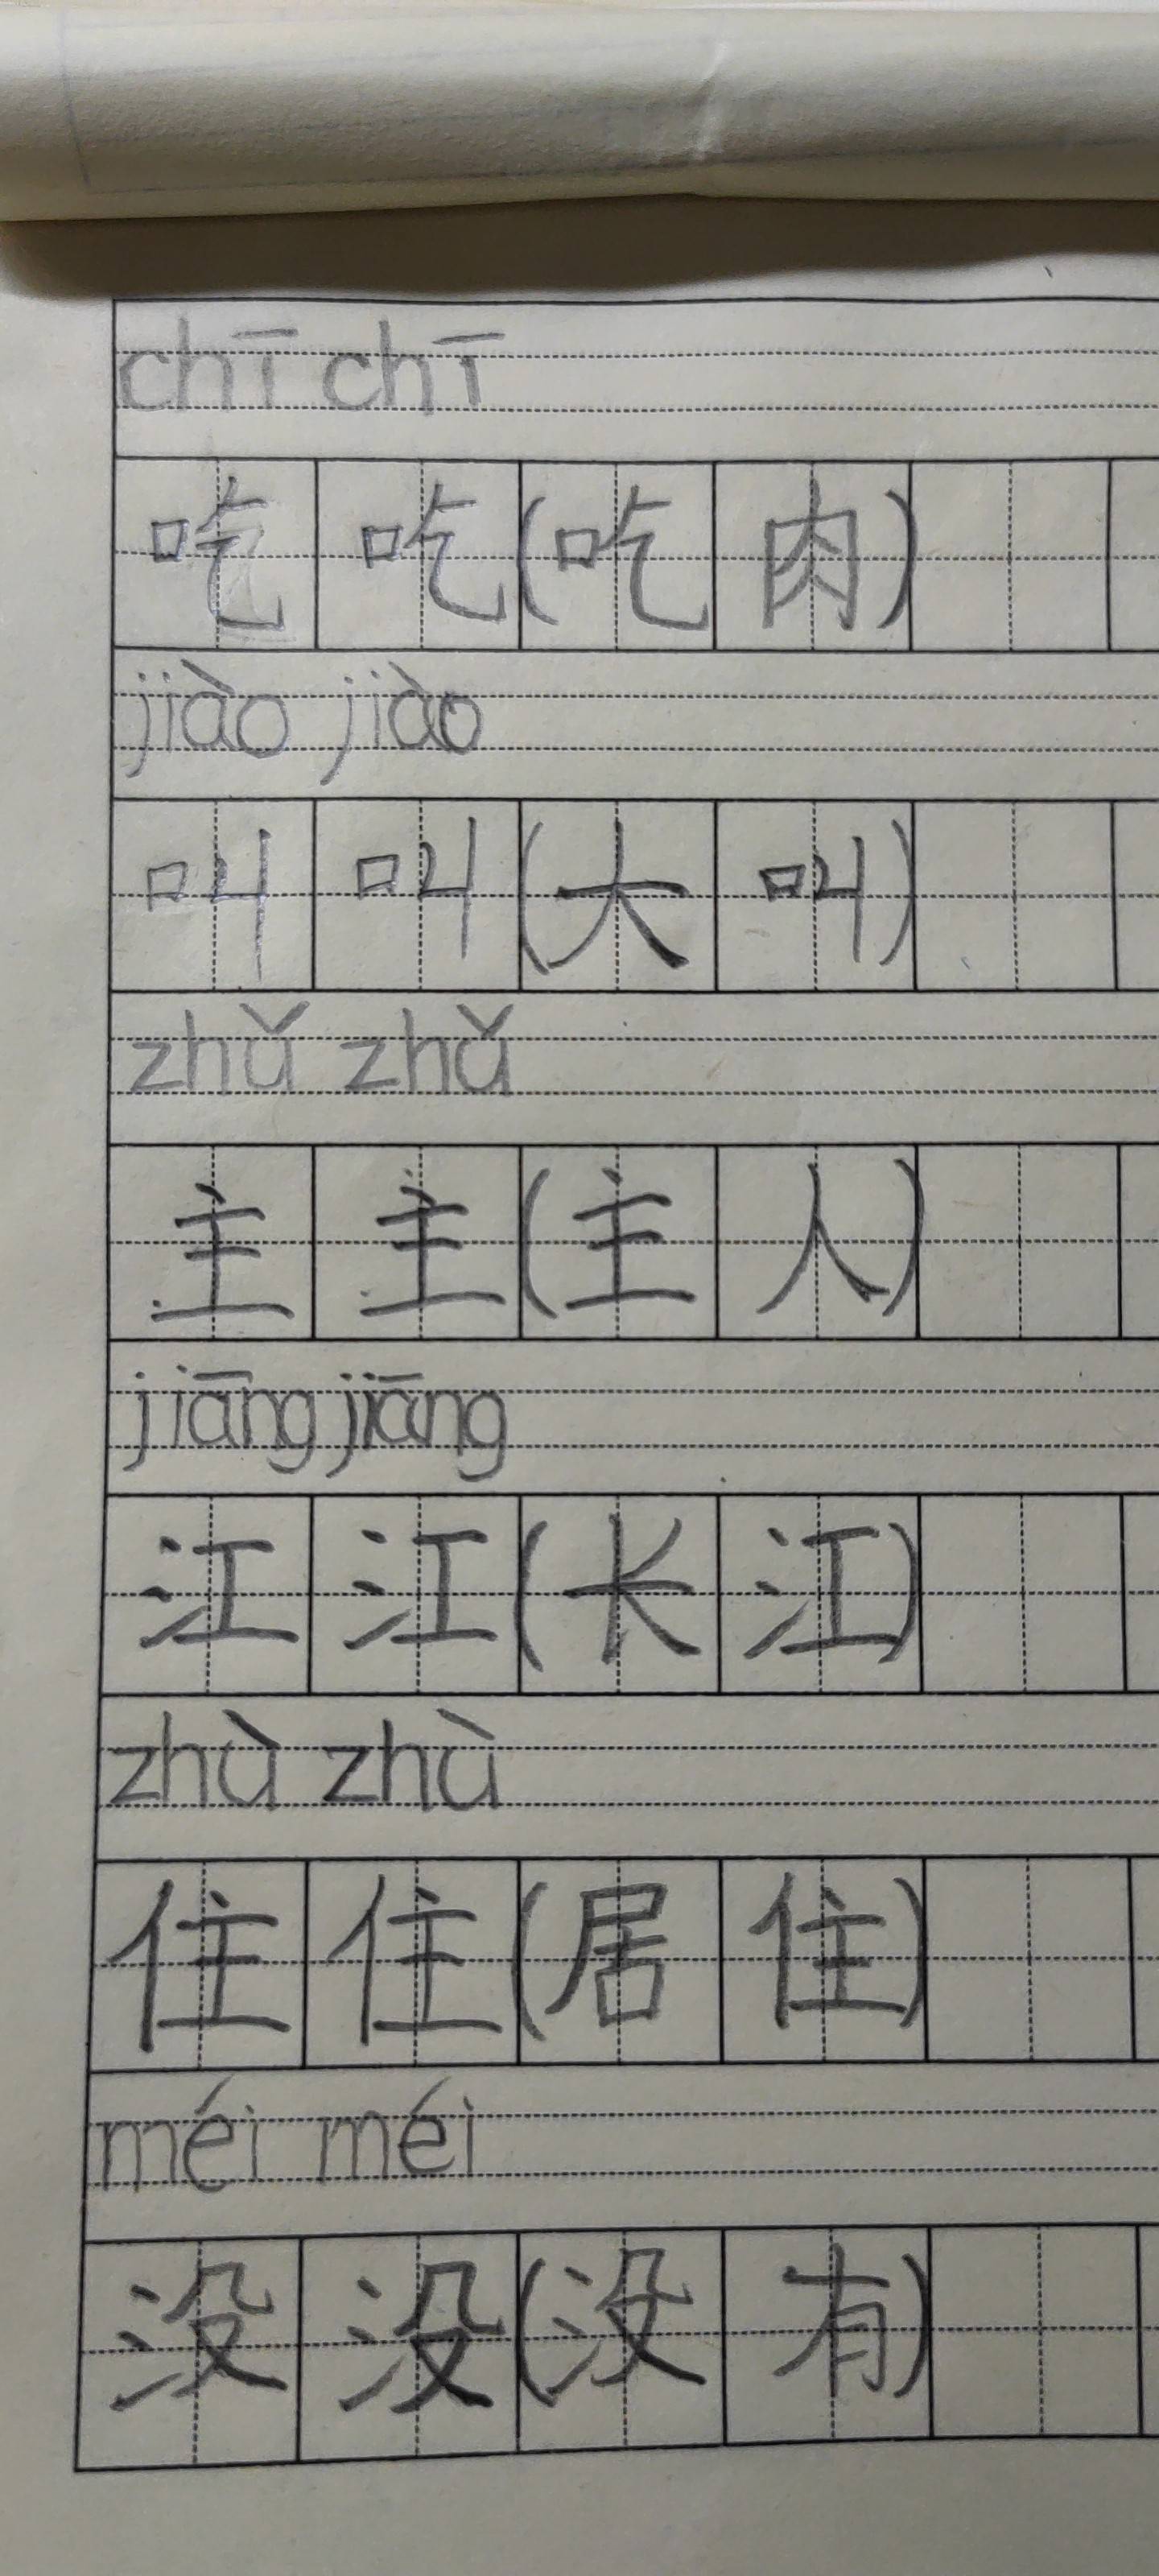 chī chī
吃 吃(吃 肉)
jiào jiào
叫 叫(大 叫)
zhǔ zhǔ
主 主(主 人)
jiāng jiāng
江 江(长 江)
zhù zhù
住 住(居 住)
méi méi
没 没(没 有)